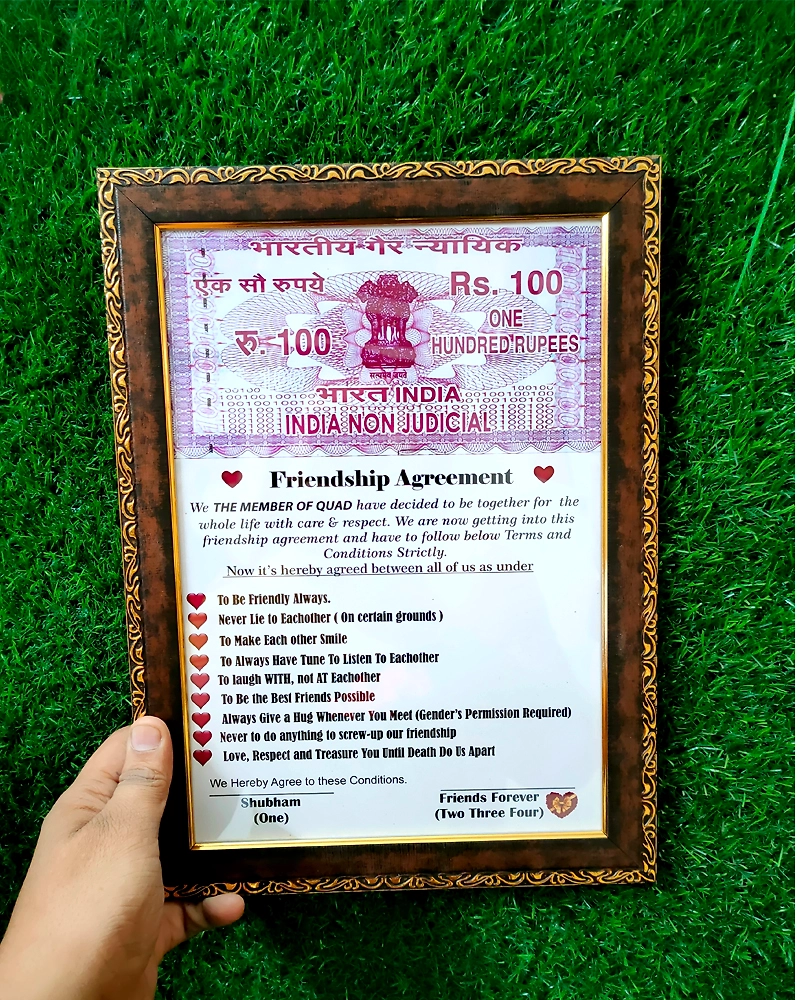 भारतीय गैर न्यायिक
एक सौ रुपये
Rs. 100
रु. 100
ONE
HUNDRED RUPEES
सत्यमेव जयते
भारत INDIA
INDIA NON JUDICIAL
Friendship Agreement
We THE MEMBER OF QUAD have decided to be together for the
whole life with care & respect. We are now getting into this
friendship agreement and have to follow below Terms and
Conditions Strictly.
Now it's hereby agreed between all of us as under
To Be Friendly Always.
Never Lie to Eachother ( On certain grounds )
To Make Each other Smile
To Always Have Tune To Listen To Eachother
To laugh WITH, not AT Eachother
To Be the Best Friends Possible
Always Give a Hug Whenever You Meet (Gender's Permission Required)
Never to do anything to screw-up our friendship
Love, Respect and Treasure You Until Death Do Us Apart
We Hereby Agree to these Conditions.
Shubham
(One)
Friends Forever
(Two Three Four)